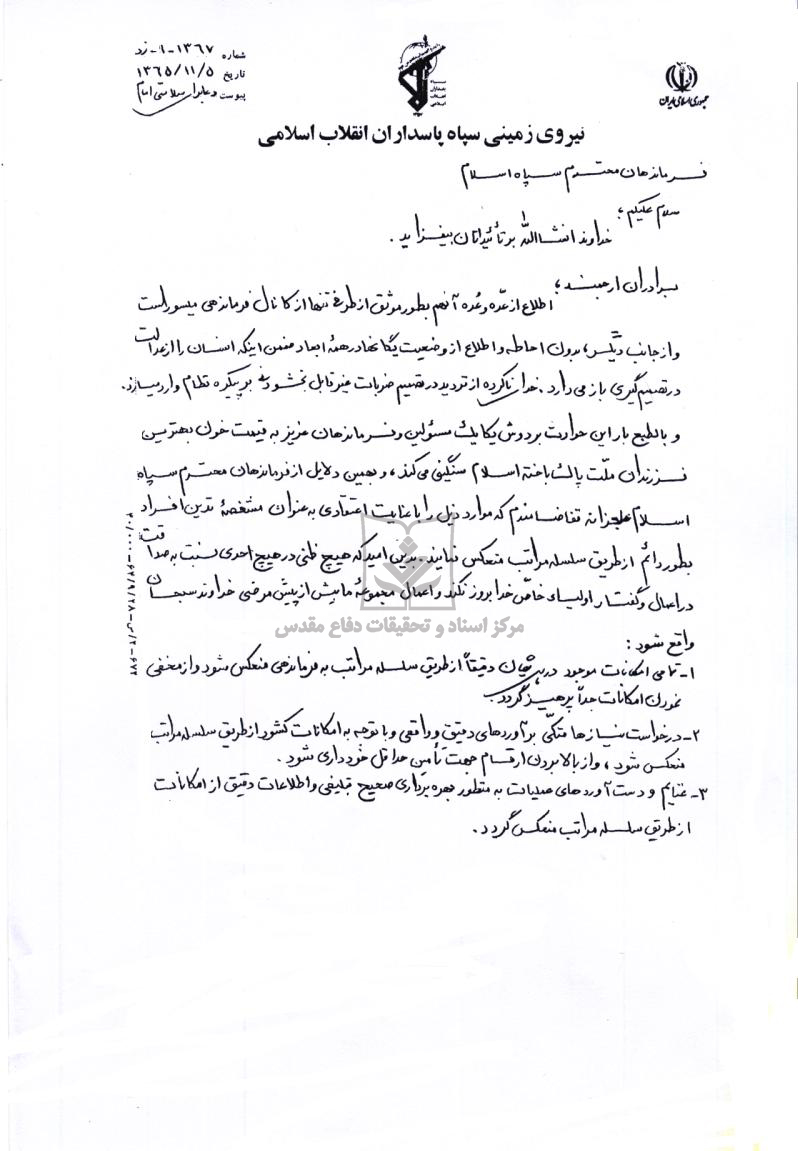 شماره ۱۳۶۷-۱-زد
تاریخ ۱۳۶۵/۱۱/۵
پیوست دعا برای سلامتی امام
جمهوری اسلامی ایران
نیروی زمینی سپاه پاسداران انقلاب اسلامی
فرماندهان محترم سپاه اسلام
سلام علیکم؛
خداوند انشاالله بر تأئیداتتان بیفزاید.
برادران ارجمند؛
اطلاع از عدّه و عُده آنهم بطور موثق از طرفی تنها از کانال فرماندهی میسور است
و از جانب دیگر، بدون احاطه و اطلاع از وضعیت یگانها در همۀ ابعاد ضمن اینکه انسان را از عدالت
در تصمیم گیری باز می دارد. خدای ناکرده از تردید در تصمیم ضربات غیر قابل بخشودنی بر پیکره نظام وارد میسازد.
و بالطبع بار این حوادث بر دوش یکایک مسئولین و فرماندهان عزیز به قیمت خون بهترین
فرزندان ملّت پاک باخته اسلام سنگینی می کند، و بهمین دلایل از فرماندهان محترم سپاه
اسلام عاجزانه تقاضامندم که موارد ذیل را با عنایت اعتقادی به عنوان مشخصۀ تدین افراد
بطور دائم از طریق سلسله مراتب منعکس نمایند. بدین امید که هیچ ظنی در هیچ احدی نسبت به صداقت
در اعمال و گفتار اولیاء خاصّ خدا بروز نکند و اعمال مجموعۀ ما بیش از پیش مرضی خداوند سبحان
واقع شود:
۱- تمامی امکانات موجود در دقیقاً از طریق سلسله مراتب به فرماندهی منعکس شود و از مخفی
نمودن امکانات جداً پرهیز گردد.
۲- درخواست نیازها متکّی بر آوردهای دقیق و واقعی و با توجه به امکانات کشور از طریق سلسله مراتب
منعکس شود، و از بالا بردن ارقام جهت تأمین حداقل خودداری شود.
۳- غنایم و دست آوردهای عملیات به منظور بهره برداری صحیح تبلیغی و اطلاعات دقیق از امکانات
از طریق سلسله مراتب منعکس گردد.
مرکز اسناد و تحقیقات دفاع مقدس